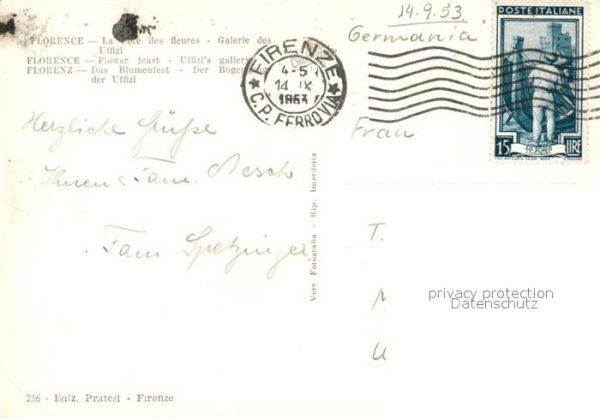 FLORENCE — La Fête des fleures - Galerie des
Uffizi
FLORENCE — Flower feast - Uffizi's gallery
FLORENZ — Das Blumenfest - Der Bogengang
der Uffizi
FIRENZE
4-5
14 IX
1953
C.P. FERROVIA
14.9.53
Germania
POSTE ITALIANE
15 LIRE
Frau
Herzliche Grüße
Ihnen Fam. Resch
Fam Spetzinger
Vera Fotografia - Rip. Interdetta
T.
M
U
privacy protection
Datenschutz
256 - Ediz. Pratesi - Firenze